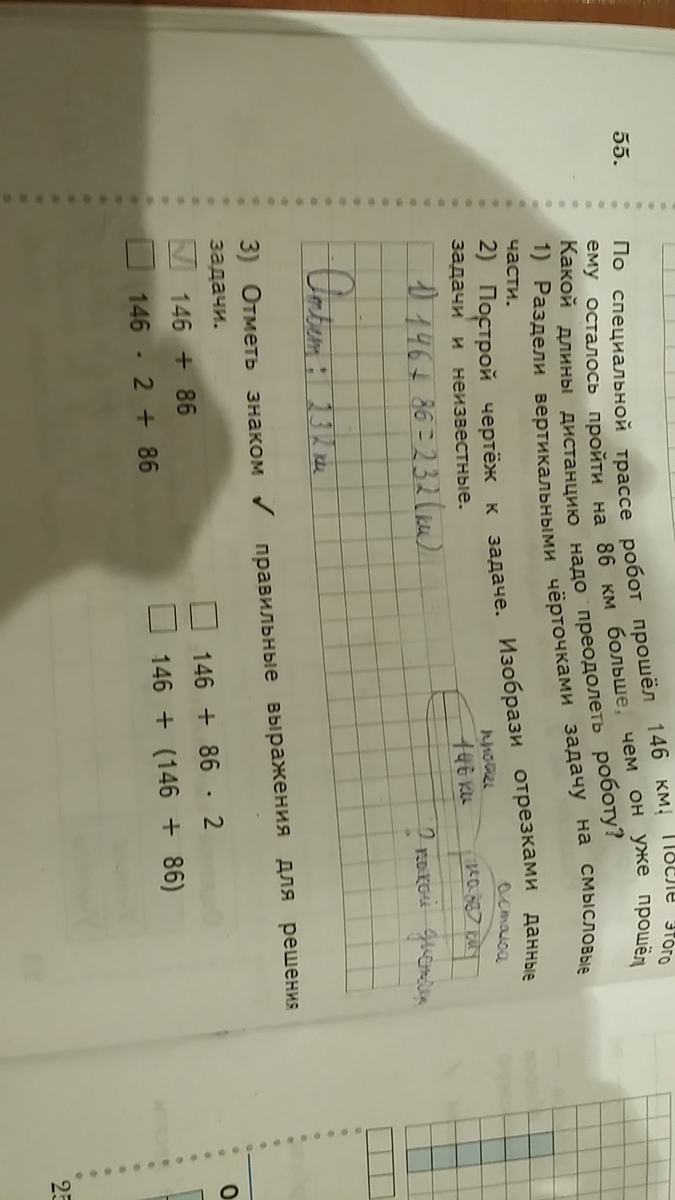 55.
По специальной трассе робот прошёл 146 км. После этого
ему осталось пройти на 86 км больше, чем он уже прошёл.
Какой длины дистанцию надо преодолеть роботу?
1) Раздели вертикальными чёрточками задачу на смысловые
части.
2) Построй чертёж к задаче. Изобрази отрезками данные
задачи и неизвестные.
прошёл осталось
146 км
1) 146 + 86 = 232 (км)
Ответ: 232 км
3) Отметь знаком ✓ правильные выражения для решения
задачи.
146 + 86
146 + 86 · 2
146 · 2 + 86
146 + (146 + 86)